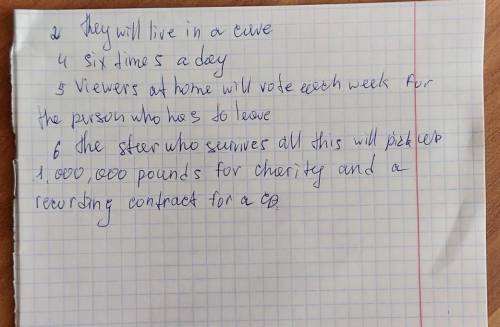 2 They will live in a cave
4 six times a day
5 Viewers at home will vote each week for
the person who has to leave
6 The star who survives all this will pick up
1,000,000 pounds for charity and a
recording contract for a CD.